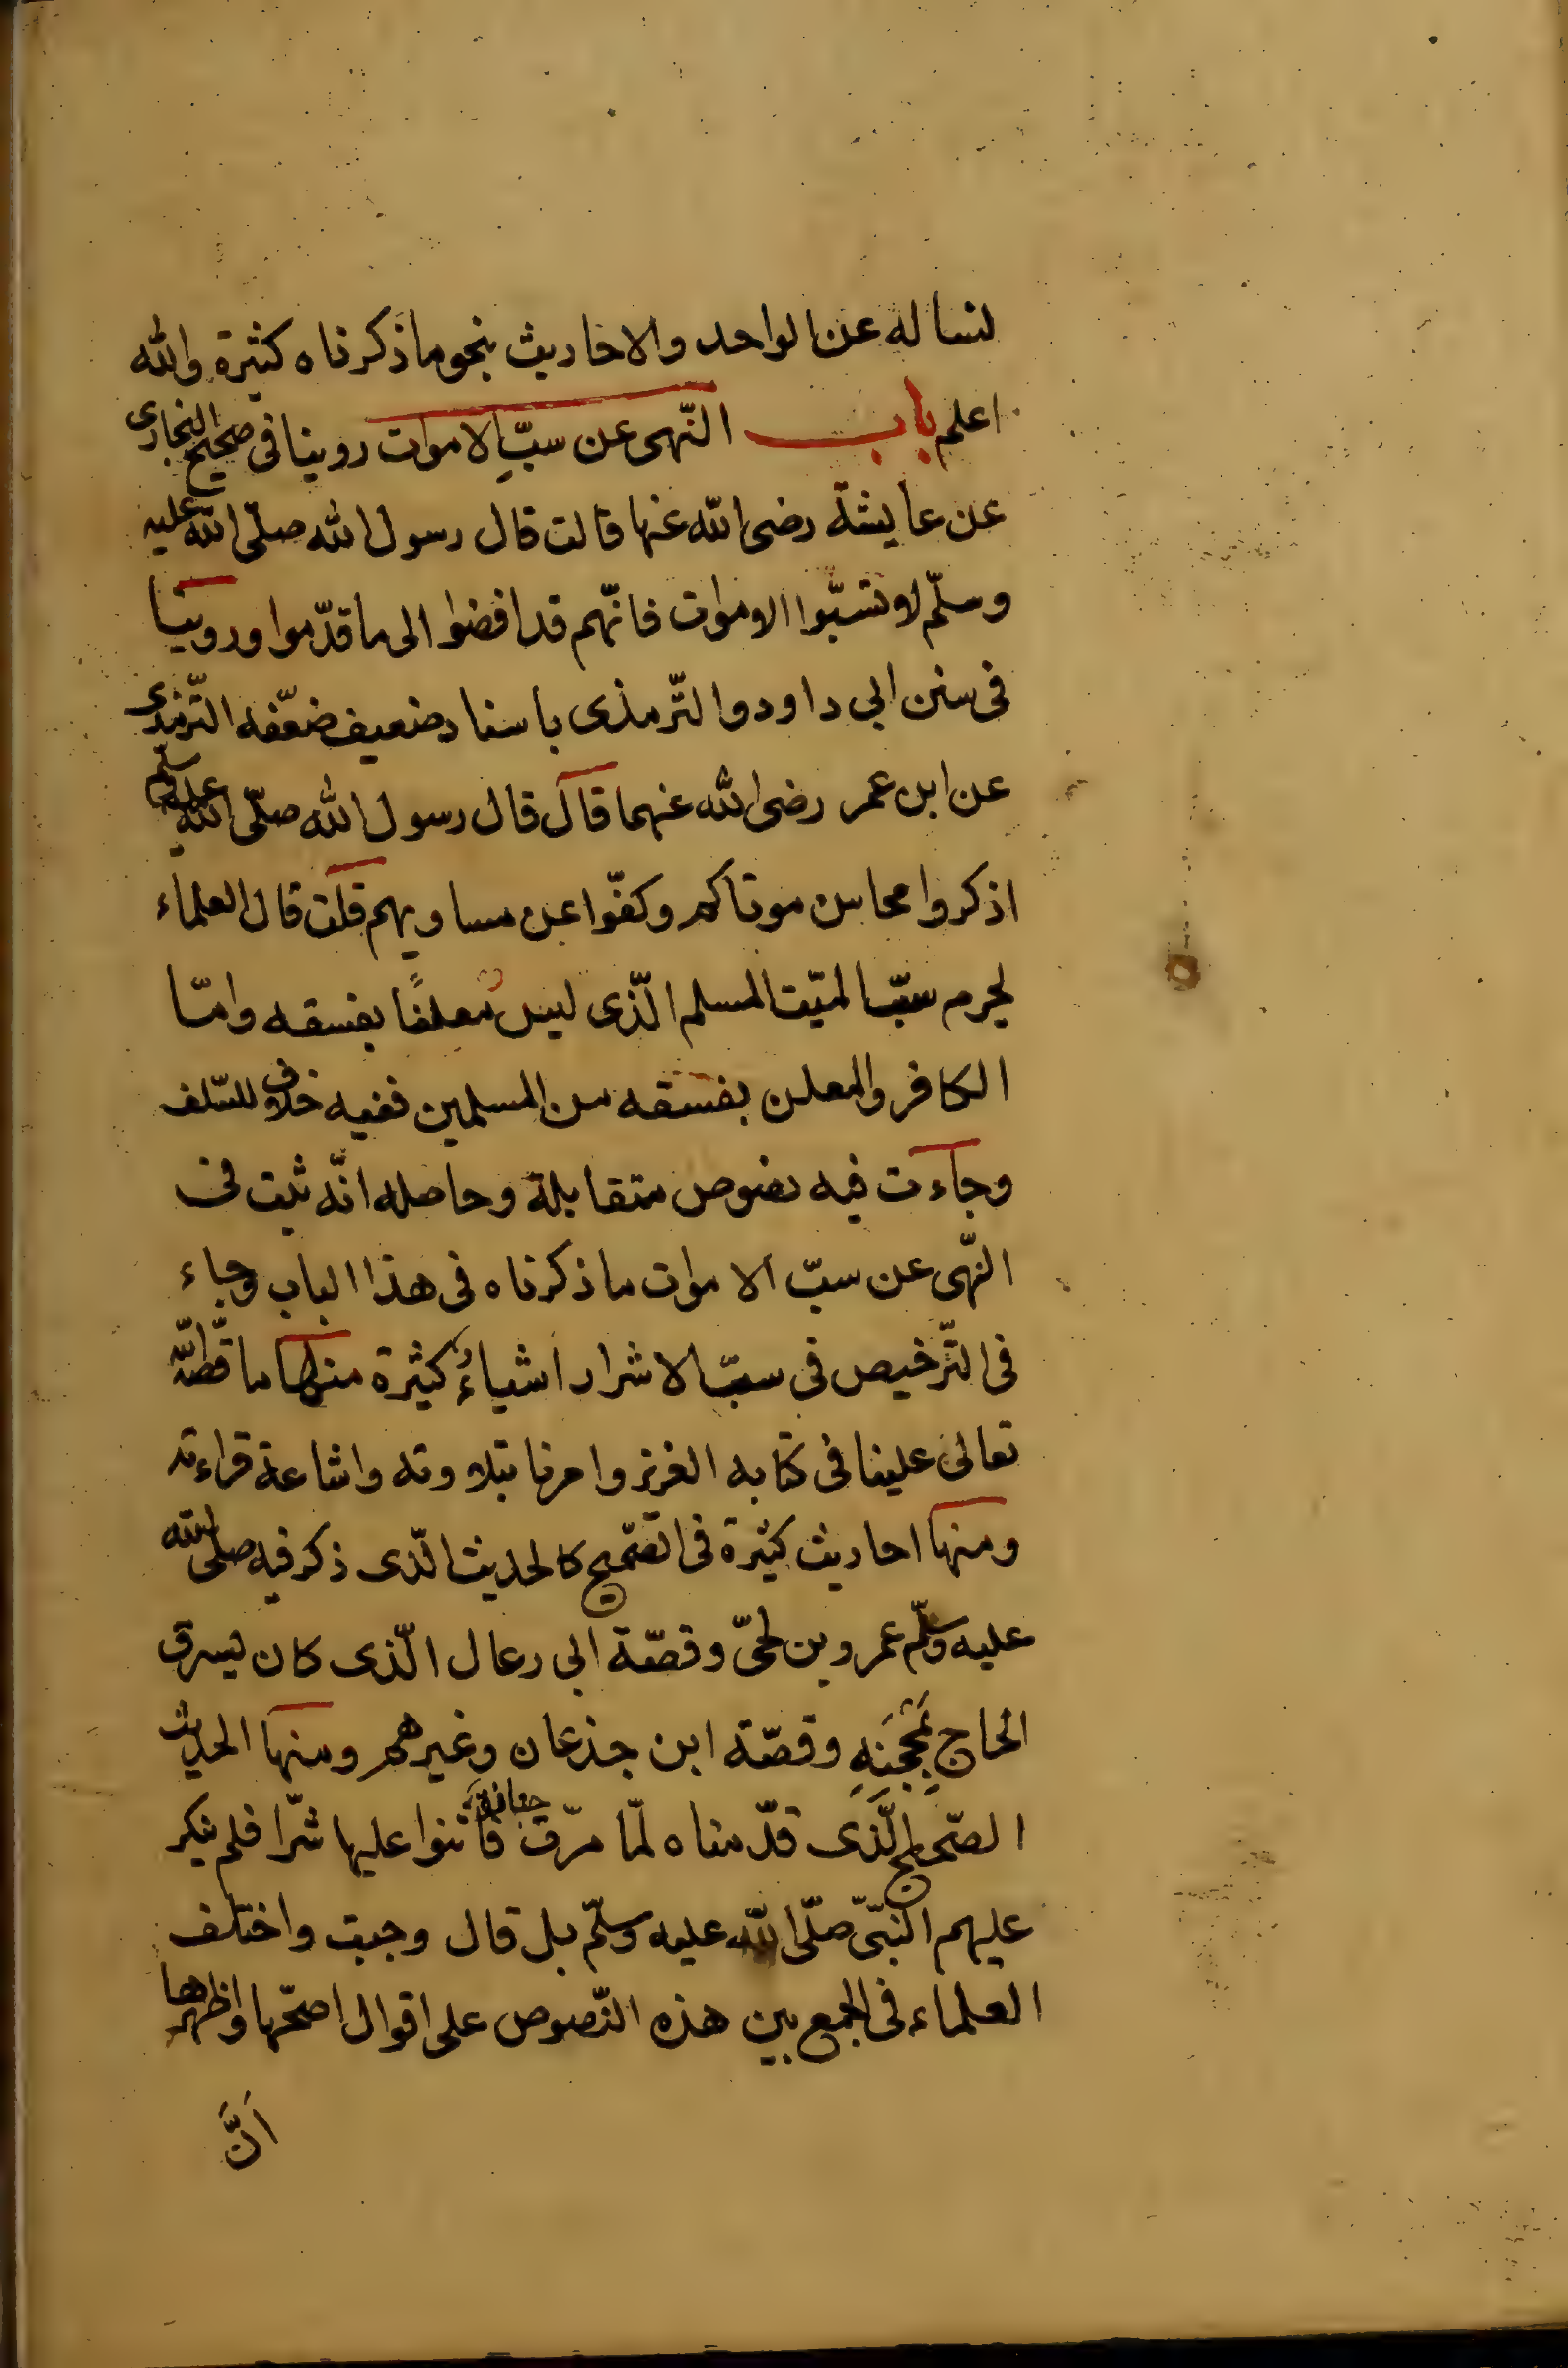 لنساله عن الواحد والاحاديث بنحو ما ذكرناه كثيرة والله
اعلم باب النّهى عن سبّ الاموات روينا فى صحيح البخارى
عن عايشة رضى الله عنها قالت قال رسول الله صلّى الله عليه
وسلّم لا تسبّوا الاموات فانّهم قد افضوا الى ما قدّموا وروينا
فى سنن ابى داود والتّرمذى باسناد ضعيف ضعّفه التّرمذى
عن ابن عمر رضى الله عنهما قال قال رسول الله صلّى الله عليه وسلّم
اذكروا محاسن موتاكم وكفّوا عن مساويهم قلت قال العلماء
يحرم سبّ الميّت المسلم الّذى ليس معلنًا بفسقه وامّا
الكافر والمعلن بفسقه من المسلمين ففيه خلاف للسّلف
وجاءت فيه نصوص متقابلة وحاصله انّه ثبت فى
النّهى عن سبّ الاموات ما ذكرناه فى هذا الباب وجاء
فى التّرخيص فى سبّ الاشرار اشياءُ كثيرة منها ما قصّ الله
تعالى علينا فى كتابه العزيز وامرنا بتلاوته واشاعة قراءته
ومنها احاديث كثيرة فى الصّحيح كالحديث الّذى ذكر فيه صلى الله
عليه وسلّم عمرو بن لحىّ وقصّة ابى رعال الّذى كان يسرق
الحاج بمَحجَنِهِ وقصّة ابن جذعان وغيرهم ومنها الحديث
الصّحيح الّذى قدّمناه لمّا مرّت جنازة فاَثنوا عليها شرّا فلم ينكر
عليهم النّبىّ صلّى الله عليه وسلّم بل قال وجبت واختلف
العلماء فى الجمع بين هذه النّصوص على اقوال اصحّها واظهرها
اَنَّ